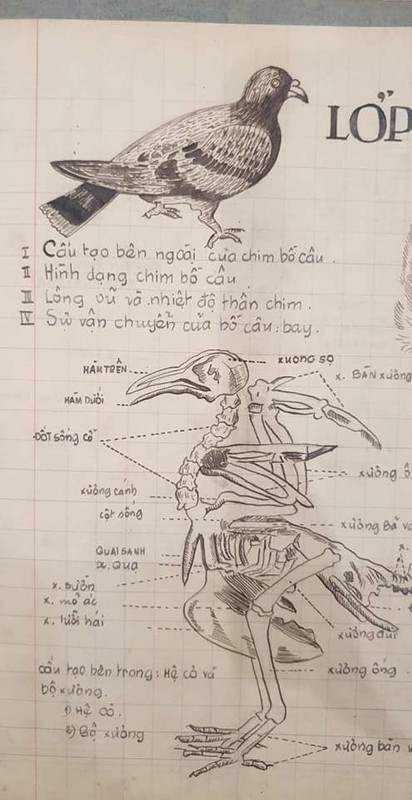 LỚP
I Cấu tạo bên ngoài của chim bồ câu.
II Hình dạng chim bồ câu.
III Lông vũ và nhiệt độ thân chim.
IV Sự vận chuyển của bồ câu: bay.
xương sọ
HÀM TRÊN
x. BÀN
HÀM DƯỚI
ĐỐT sống cổ
xương
xương cánh
cột sống
xương Bả
QUAI SANH
x. Quạ
x.
x. SƯỜN
x. mỏ ác
x. lưỡi hái
xương đùi
cấu tạo bên trong: Hệ cơ và
bộ xương.
xương ống
1) Hệ cơ.
2) Bộ xương
xương bàn